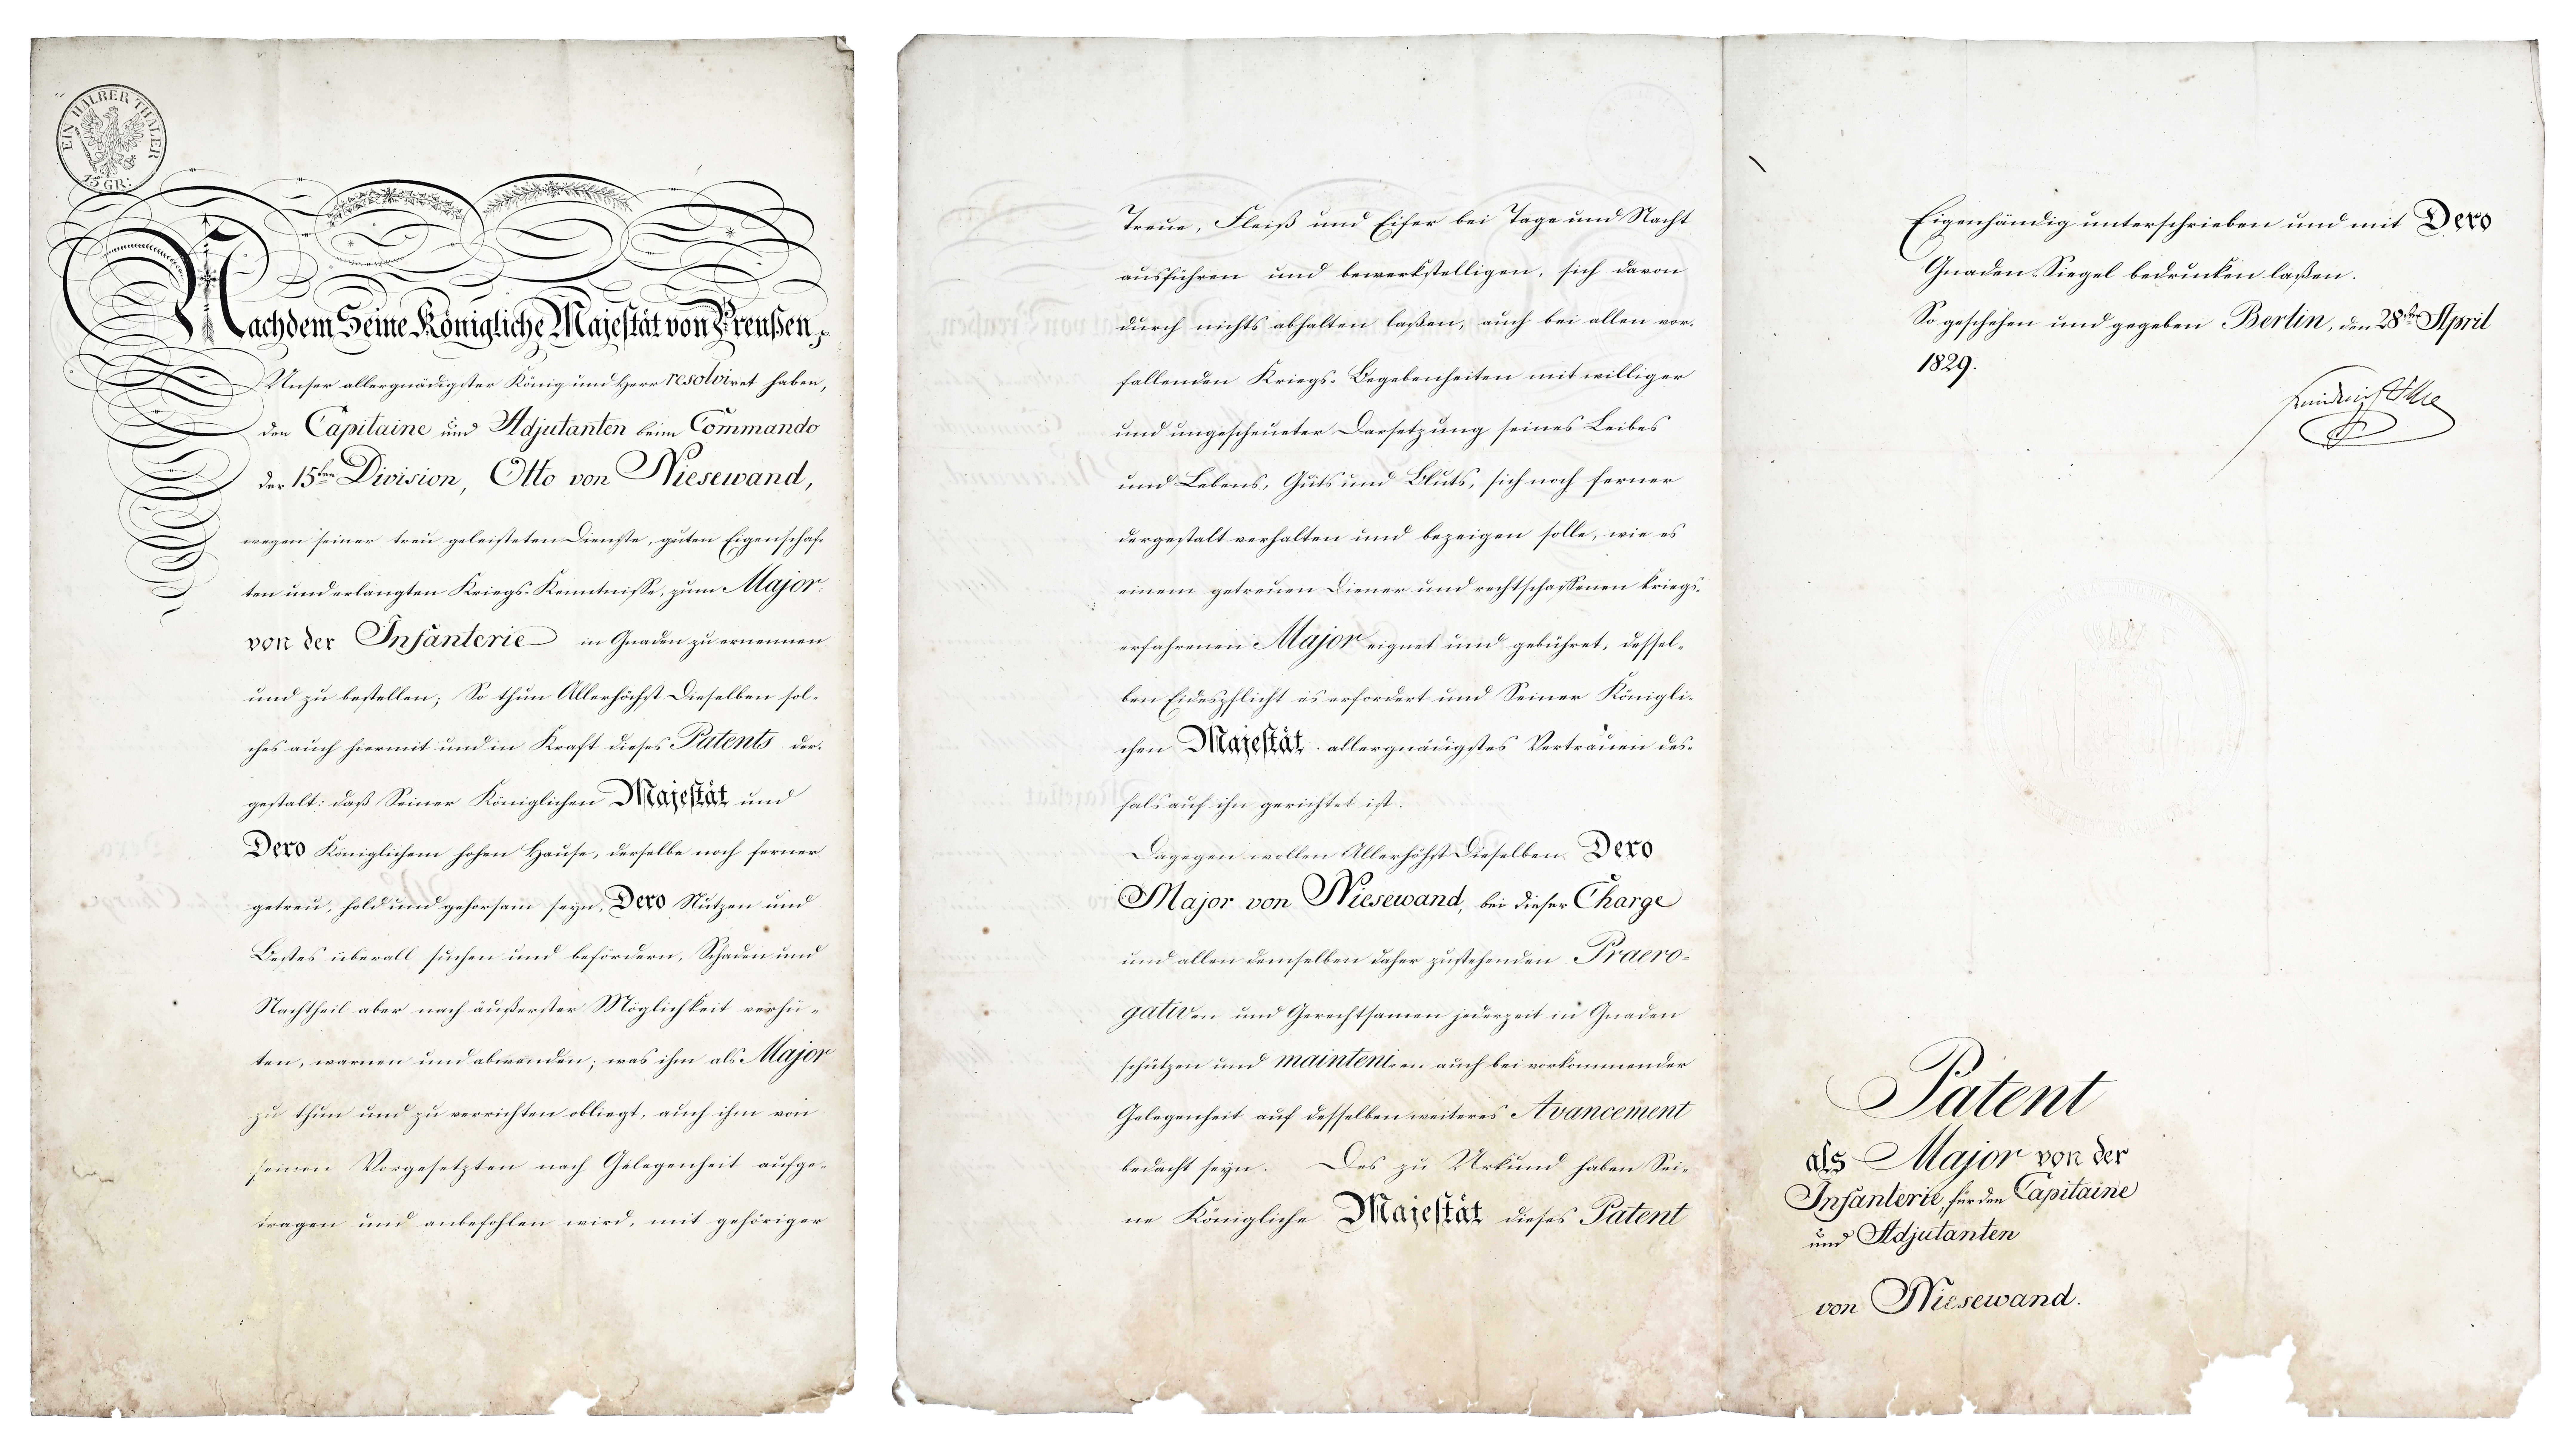 EIN HALBER THALER
15 GR:
Nachdem Seine Königliche Majestät von Preußen,
Unser allergnädigster König und Herr resolviret haben,
den Capitaine und Adjutanten beim Commando
der 15ten Division, Otto von Niesewand,
wegen seiner treu geleisteten Dienste, guten Eigenschaf-
ten und erlangten Kriegs-Kenntnisse, zum Major
von der Infanterie in Gnaden zu ernennen
und zu bestellen; So thun Allerhöchst Dieselben sol-
ches auch hiermit und in Kraft dieses Patents der-
gestalt: daß Seiner Königlichen Majestät und
Dero Königlichem hohen Hause, derselbe noch ferner
getreu, hold und gehorsam seyn, Dero Nutzen und
Bestes überall suchen und befördern, Schaden und
Nachtheil aber nach äußerster Möglichkeit verhü-
ten, warnen und abwenden; was ihm als Major
zu thun und zu verrichten obliegt, auch ihm von
seinen Vorgesetzten nach Gelegenheit aufge-
tragen und anbefohlen wird, mit gehöriger
Treue, Fleiß und Eifer bei Tage und Nacht
ausführen und bewerkstelligen, sich davon
durch nichts abhalten laßen, auch bei allen vor-
fallenden Kriegs-Begebenheiten mit williger
und ungescheueter Darsetzung seines Leibes
und Lebens, Guts und Bluts, sich noch ferner
dergestalt verhalten und bezeigen solle, wie es
einem getreuen Diener und rechtschaffenen kriegs-
erfahrenen Major eignet und gebühret, dessel-
ben Eidespflicht es erfordert und Seiner Königli-
chen Majestät allergnädigstes Vertrauen des-
fals auf ihn gerichtet ist.
Dagegen wollen Allerhöchst Dieselben Dero
Major von Niesewand, bei dieser Charge
und allen demselben daher zustehenden Praero-
gativen und Gerechtsamen jederzeit in Gnaden
schützen und mainteniren auch bei vorkommender
Gelegenheit auf desselben weiteres Avancement
bedacht seyn. Des zu Urkund haben Sei-
ne Königliche Majestät dieses Patent
Eigenhändig unterschrieben und mit Dero
Gnaden-Siegel bedrucken laßen.
So geschehen und gegeben Berlin, den 28ten April
1829.
Patent
als Major von der
Infanterie, für den Capitaine
und Adjutanten
von Niesewand.